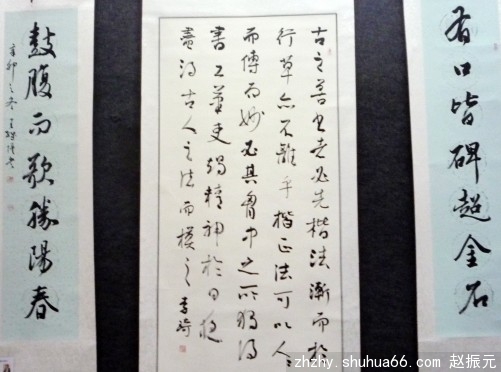 有口皆碑超金石
古之善书者必先楷法漸而於
行草亦不離乎楷正法可以人
而傳而妙必其胷中之所獨得
書工筆吏竭精神於日夜
盡得古人之法而模之
鼓腹而歌勝陽春
辛卯之冬
zhzhy.shuhua66.com 赵振元